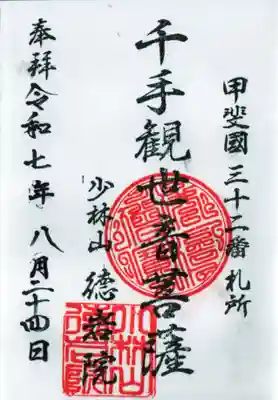 甲斐國三十二番札所
千手観世音菩薩
少林山 德岩院
奉拝 令和七年 八月二十四日